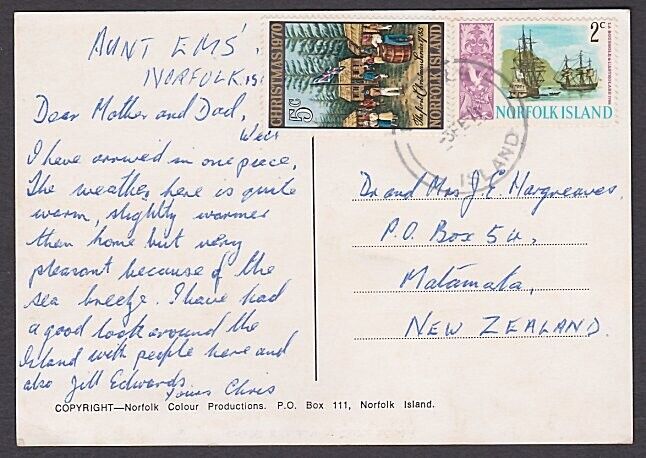 AUNT EMS',
NORFOLK IS.
Dear Mother and Dad,
Well
I have arrived in one piece.
The weather here is quite
warm, slightly warmer
than home but very
pleasant because of the
sea breeze. I have had
a good look around the
Island with people here and
also Jill Edwards.
Yours Chris
COPYRIGHT—Norfolk Colour Productions. P.O. Box 111, Norfolk Island.
CHRISTMAS 1970
5c
NORFOLK ISLAND
2c
NORFOLK ISLAND
ISLAND
Dr and Mrs J.E. Hargreaves,
P.O. Box 54,
Matamata,
NEW ZEALAND.